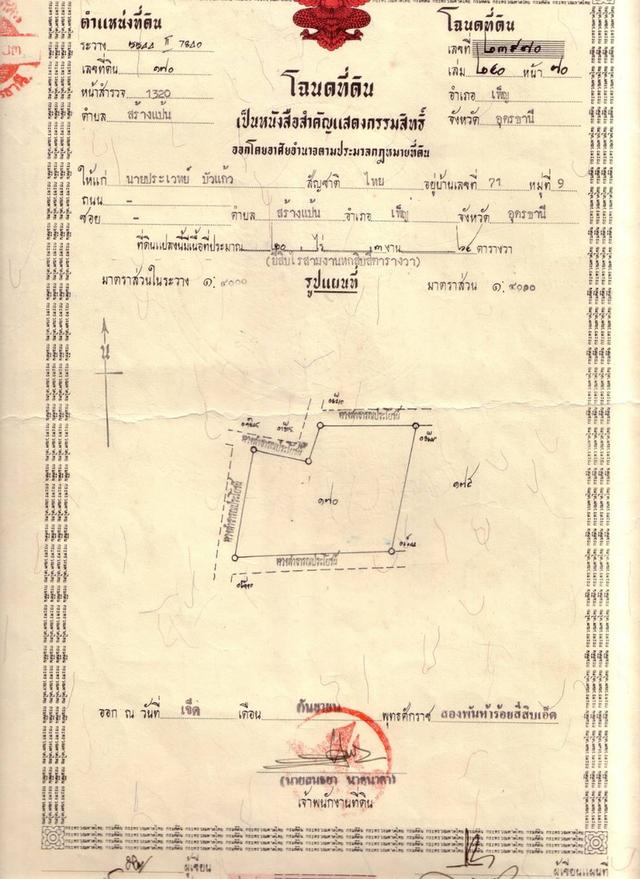 ตำแหน่งที่ดิน
ระวาง 5544 II 7840
เลขที่ดิน ๑๗๐
หน้าสำรวจ 1320
ตำบล สร้างแป้น
โฉนดที่ดิน
เลขที่ ๒๓๙๗๐
เล่ม ๒๔๐ หน้า ๗๐
อำเภอ เพ็ญ
จังหวัด อุดรธานี
โฉนดที่ดิน
เป็นหนังสือสำคัญแสดงกรรมสิทธิ์
ออกโดยอาศัยอำนาจตามประมวลกฎหมายที่ดิน
ให้แก่ นายประเวทย์ บัวแก้ว สัญชาติ ไทย อยู่บ้านเลขที่ 71 หมู่ที่ 9
ถนน -
ซอย - ตำบล สร้างแป้น อำเภอ เพ็ญ จังหวัด อุดรธานี
ที่ดินแปลงนี้มีเนื้อที่ประมาณ ๒๐ ไร่ ๓ งาน ๖๔ ตารางวา
(ยี่สิบไร่สามงานหกสิบสี่ตารางวา)
มาตราส่วนในระวาง ๑: ๔๐๐๐ รูปแผนที่ มาตราส่วน ๑: ๔๐๐๐
น
ทางสาธารณประโยชน์
ทางสาธารณประโยชน์
ทางสาธารณประโยชน์
๑๗๐
๑๗๕
ทางสาธารณประโยชน์
ออก ณ วันที่ เจ็ด เดือน กันยายน พุทธศักราช สองพันห้าร้อยสี่สิบเอ็ด
เจ้าพนักงานที่ดิน
ผู้เขียน
ผู้เขียนแผนที่